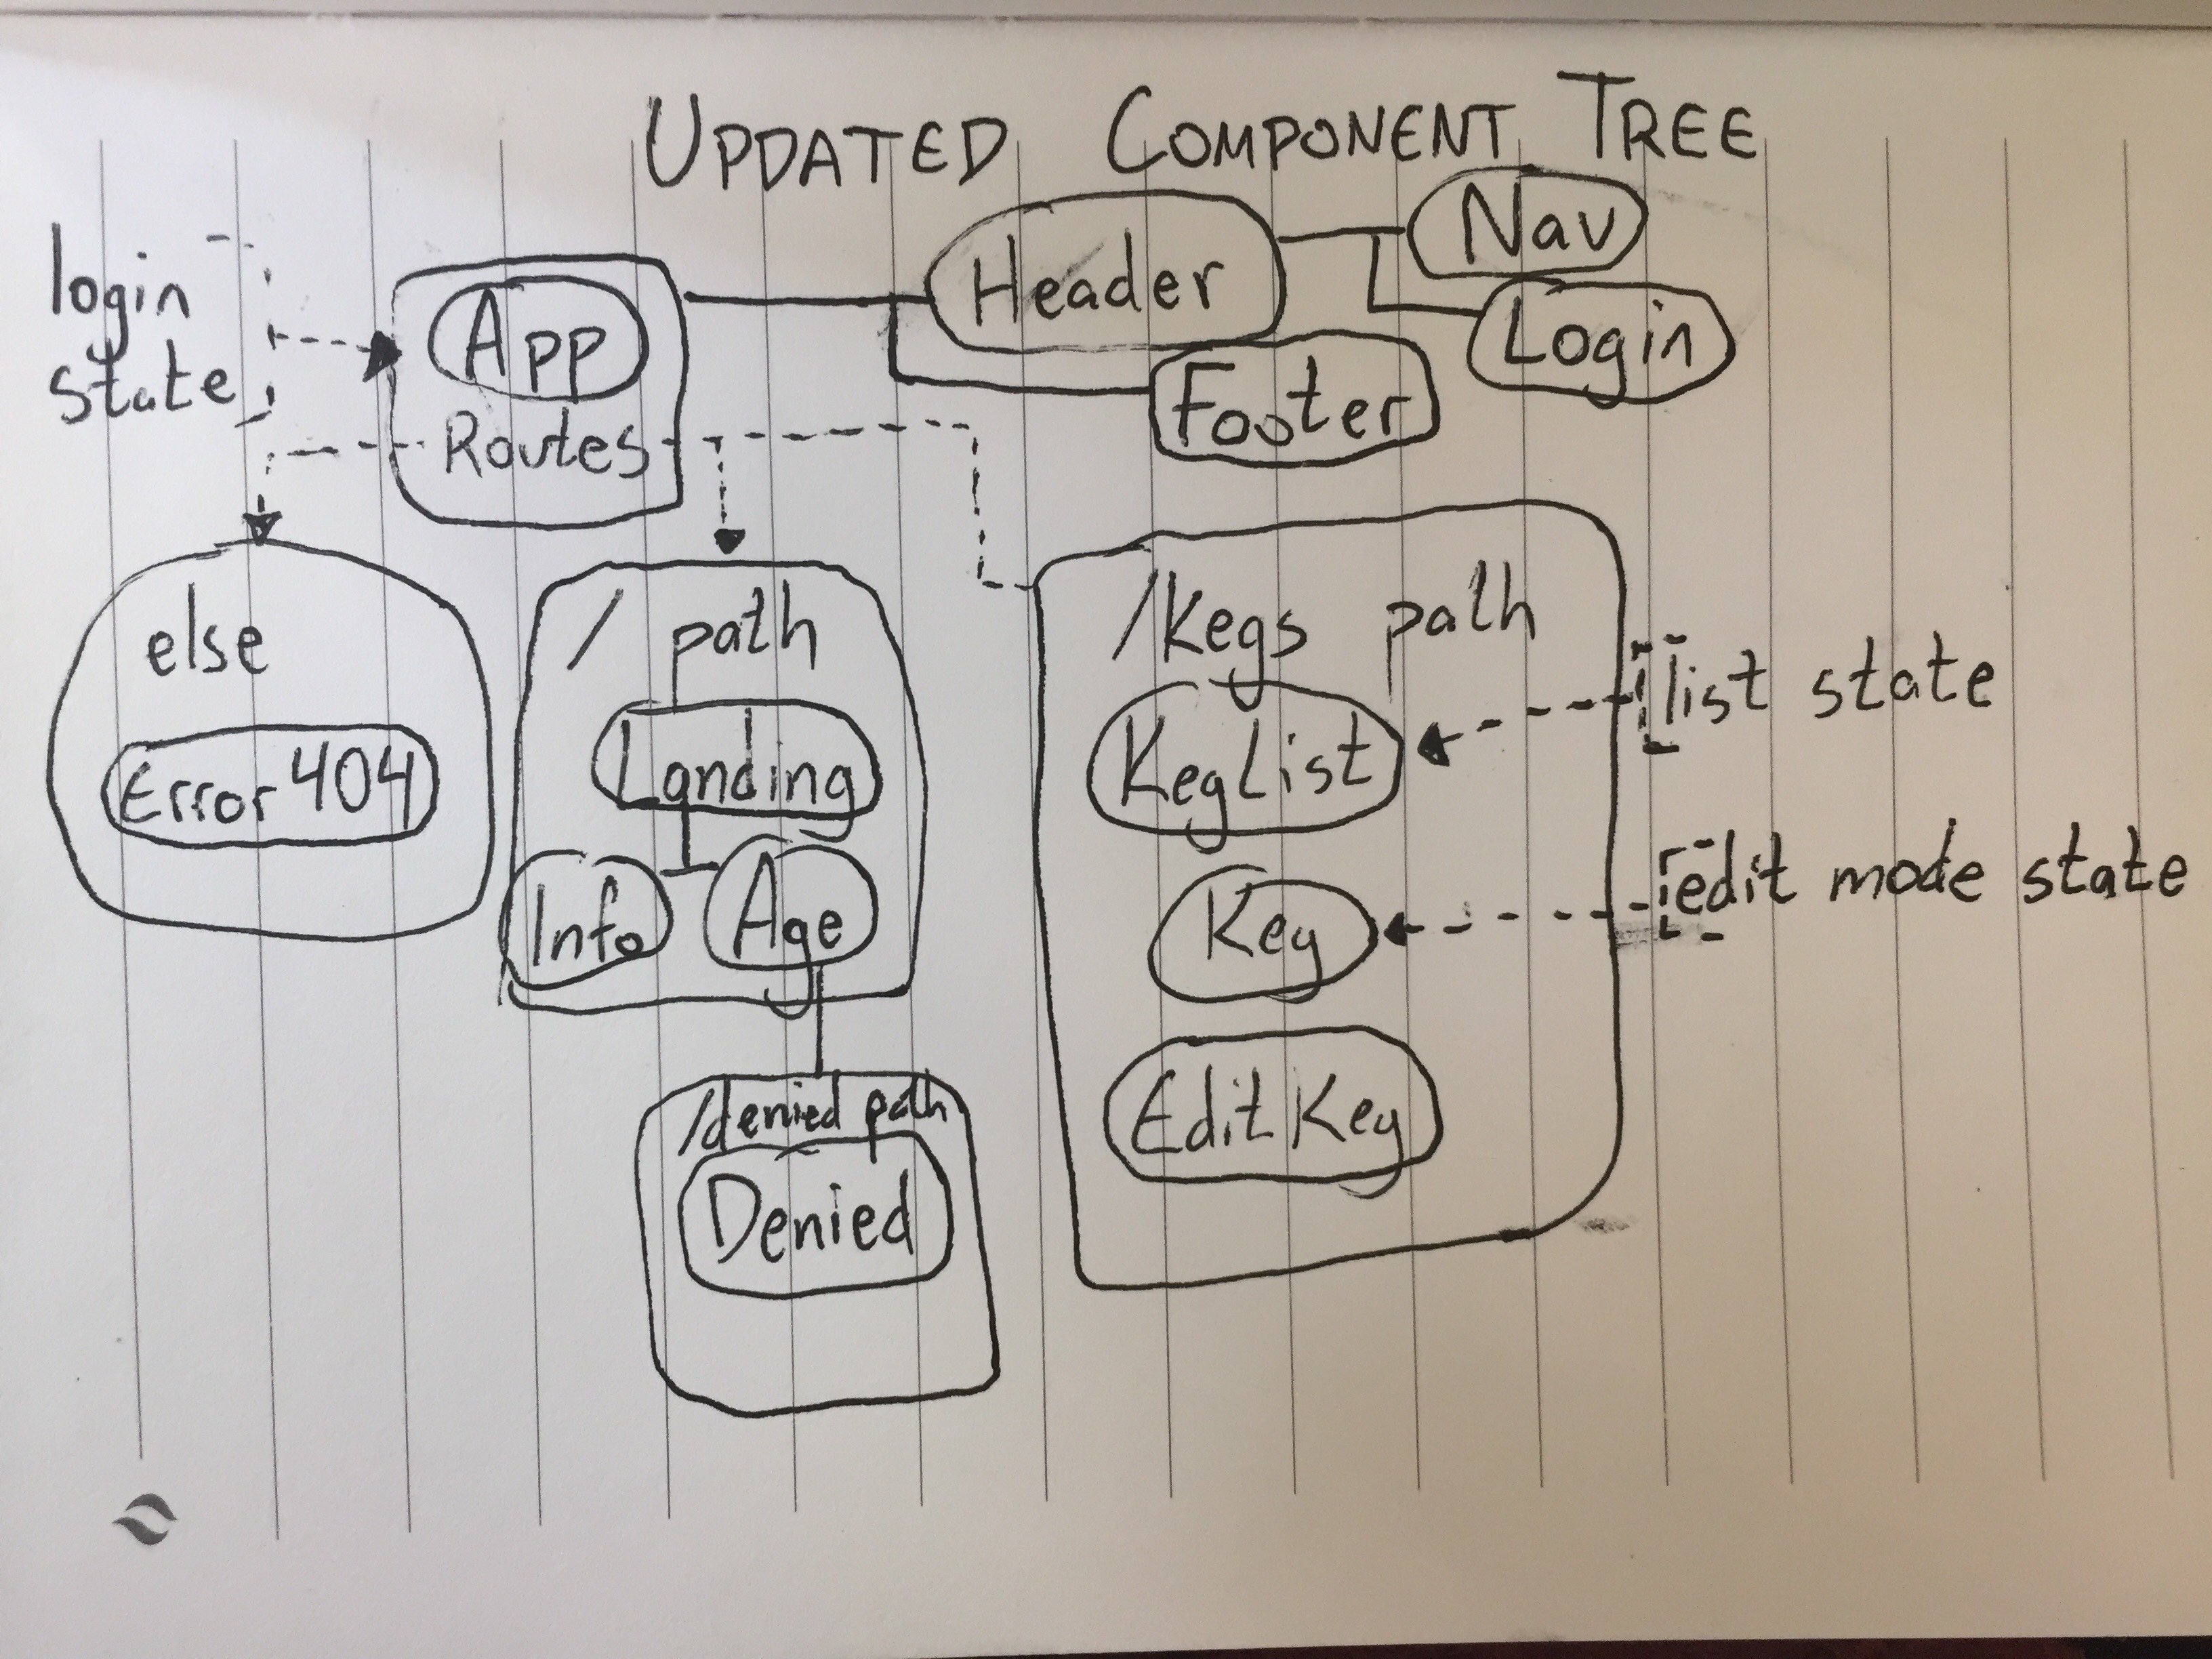 UPDATED COMPONENT TREE
login
state
App
Routes
Header
Nav
Login
Footer
else
Error404
/ path
Landing
Info
Age
/denied path
Denied
/kegs path
KegList
Keg
EditKeg
list state
edit mode state